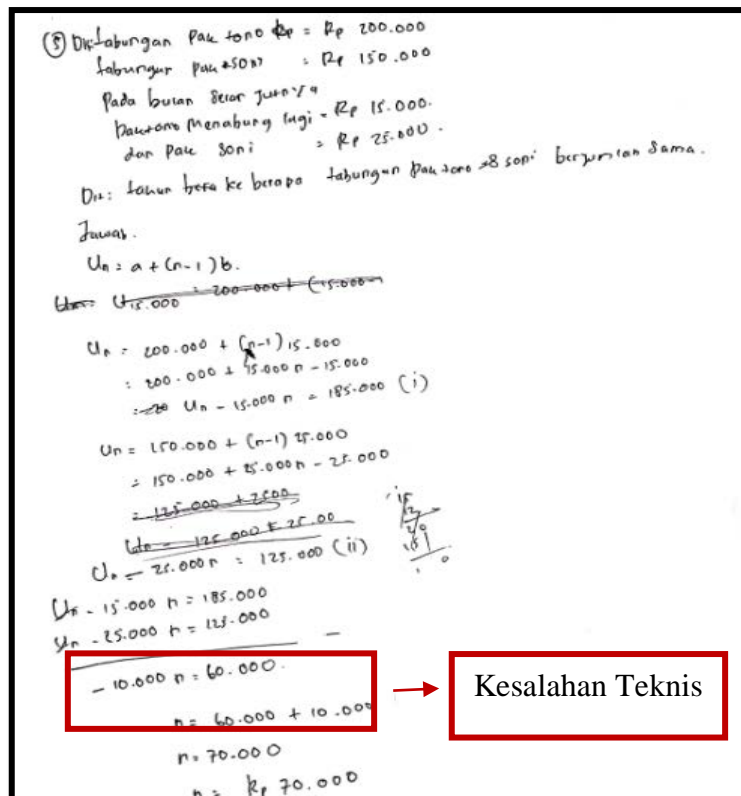 ⑤ Dik tabungan Pak tono Rp = Rp 200.000
tabungan Pak soni : Rp 150.000
Pada bulan
Pak tono Menabung lagi = Rp 15.000.
dan Pak Soni = Rp 25.000.
Dit: ke berapa tabungan Pak tono & soni berjumlah Sama.
Jawab.
Un = a + (n-1) b.
15.000 = 200.000 + (15.000
Un = 200.000 + (n-1) 15.000
= 200.000 + 15.000 n - 15.000
= Un - 15.000 n = 185.000 (i)
Un = 150.000 + (n-1) 25.000
= 150.000 + 25.000n - 25.000
= 125.000 + 2500
Un = 125.000 + 25.00
Un - 25.000 n = 125.000 (ii)
Un - 15.000 n = 185.000
Un - 25.000 n = 125.000
- 10.000 n = 60.000.
Kesalahan Teknis
n = 60.000 + 10.000
n = 70.000
n = Rp 70.000